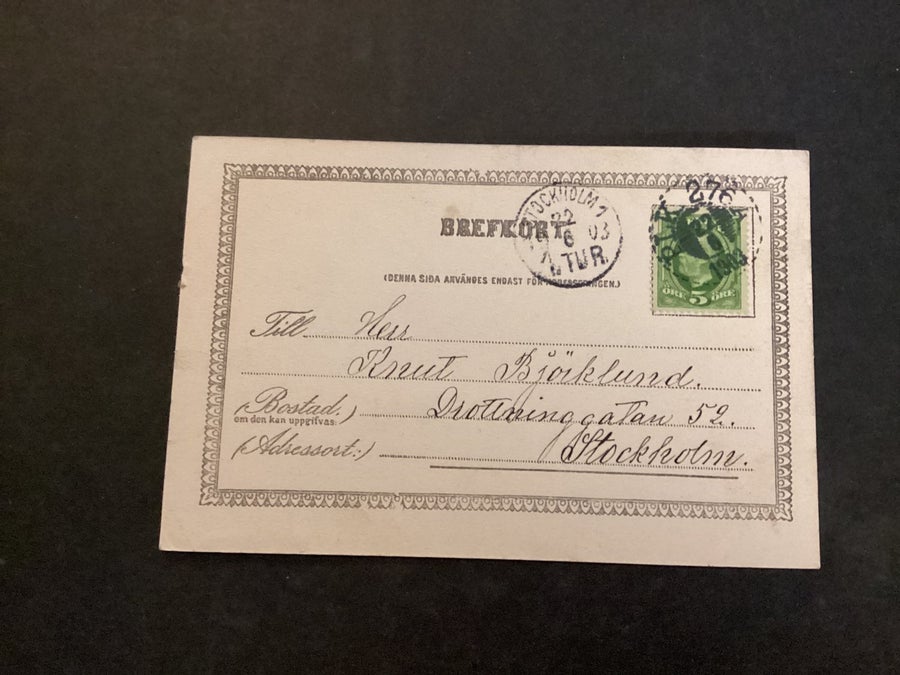 BREFKORT
STOCKHOLM 1
22
6 03
1. TUR.
276
1903
(DENNA SIDA ANVÄNDES ENDAST FÖR ADRESSERINGEN.)
ÖRE 5 ÖRE
Till Herr
Knut Björklund.
(Bostad.) Drottninggatan 52.
om den kan uppgifvas:
(Adressort:) Stockholm.